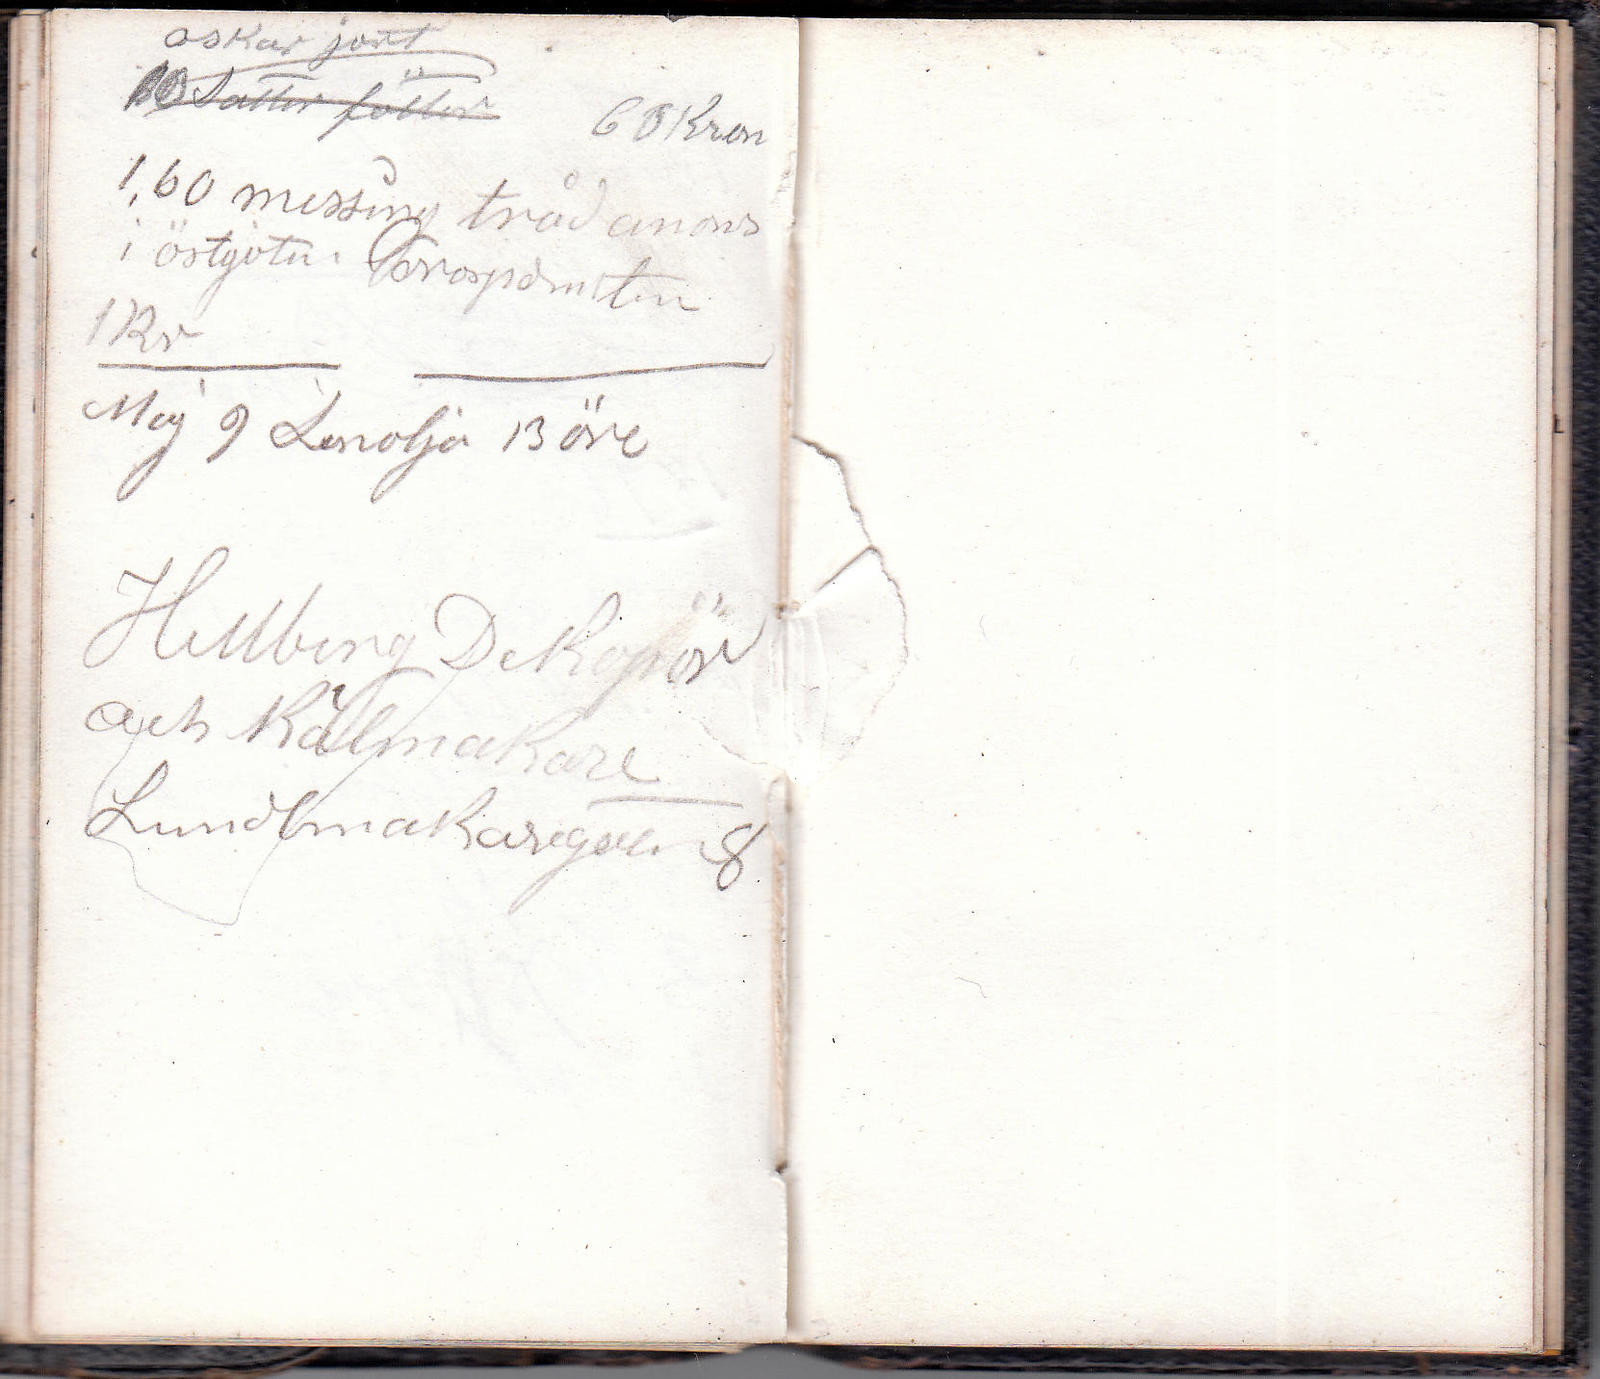 oskar jort
10 Satter fötter
60 Kron
1,60 messing tråd anons
i östgöten
1 Kr
Maj 9 Linolja 13 öre
Hellberg Dekoför
och Målmakare
Lundbmakaregat 8